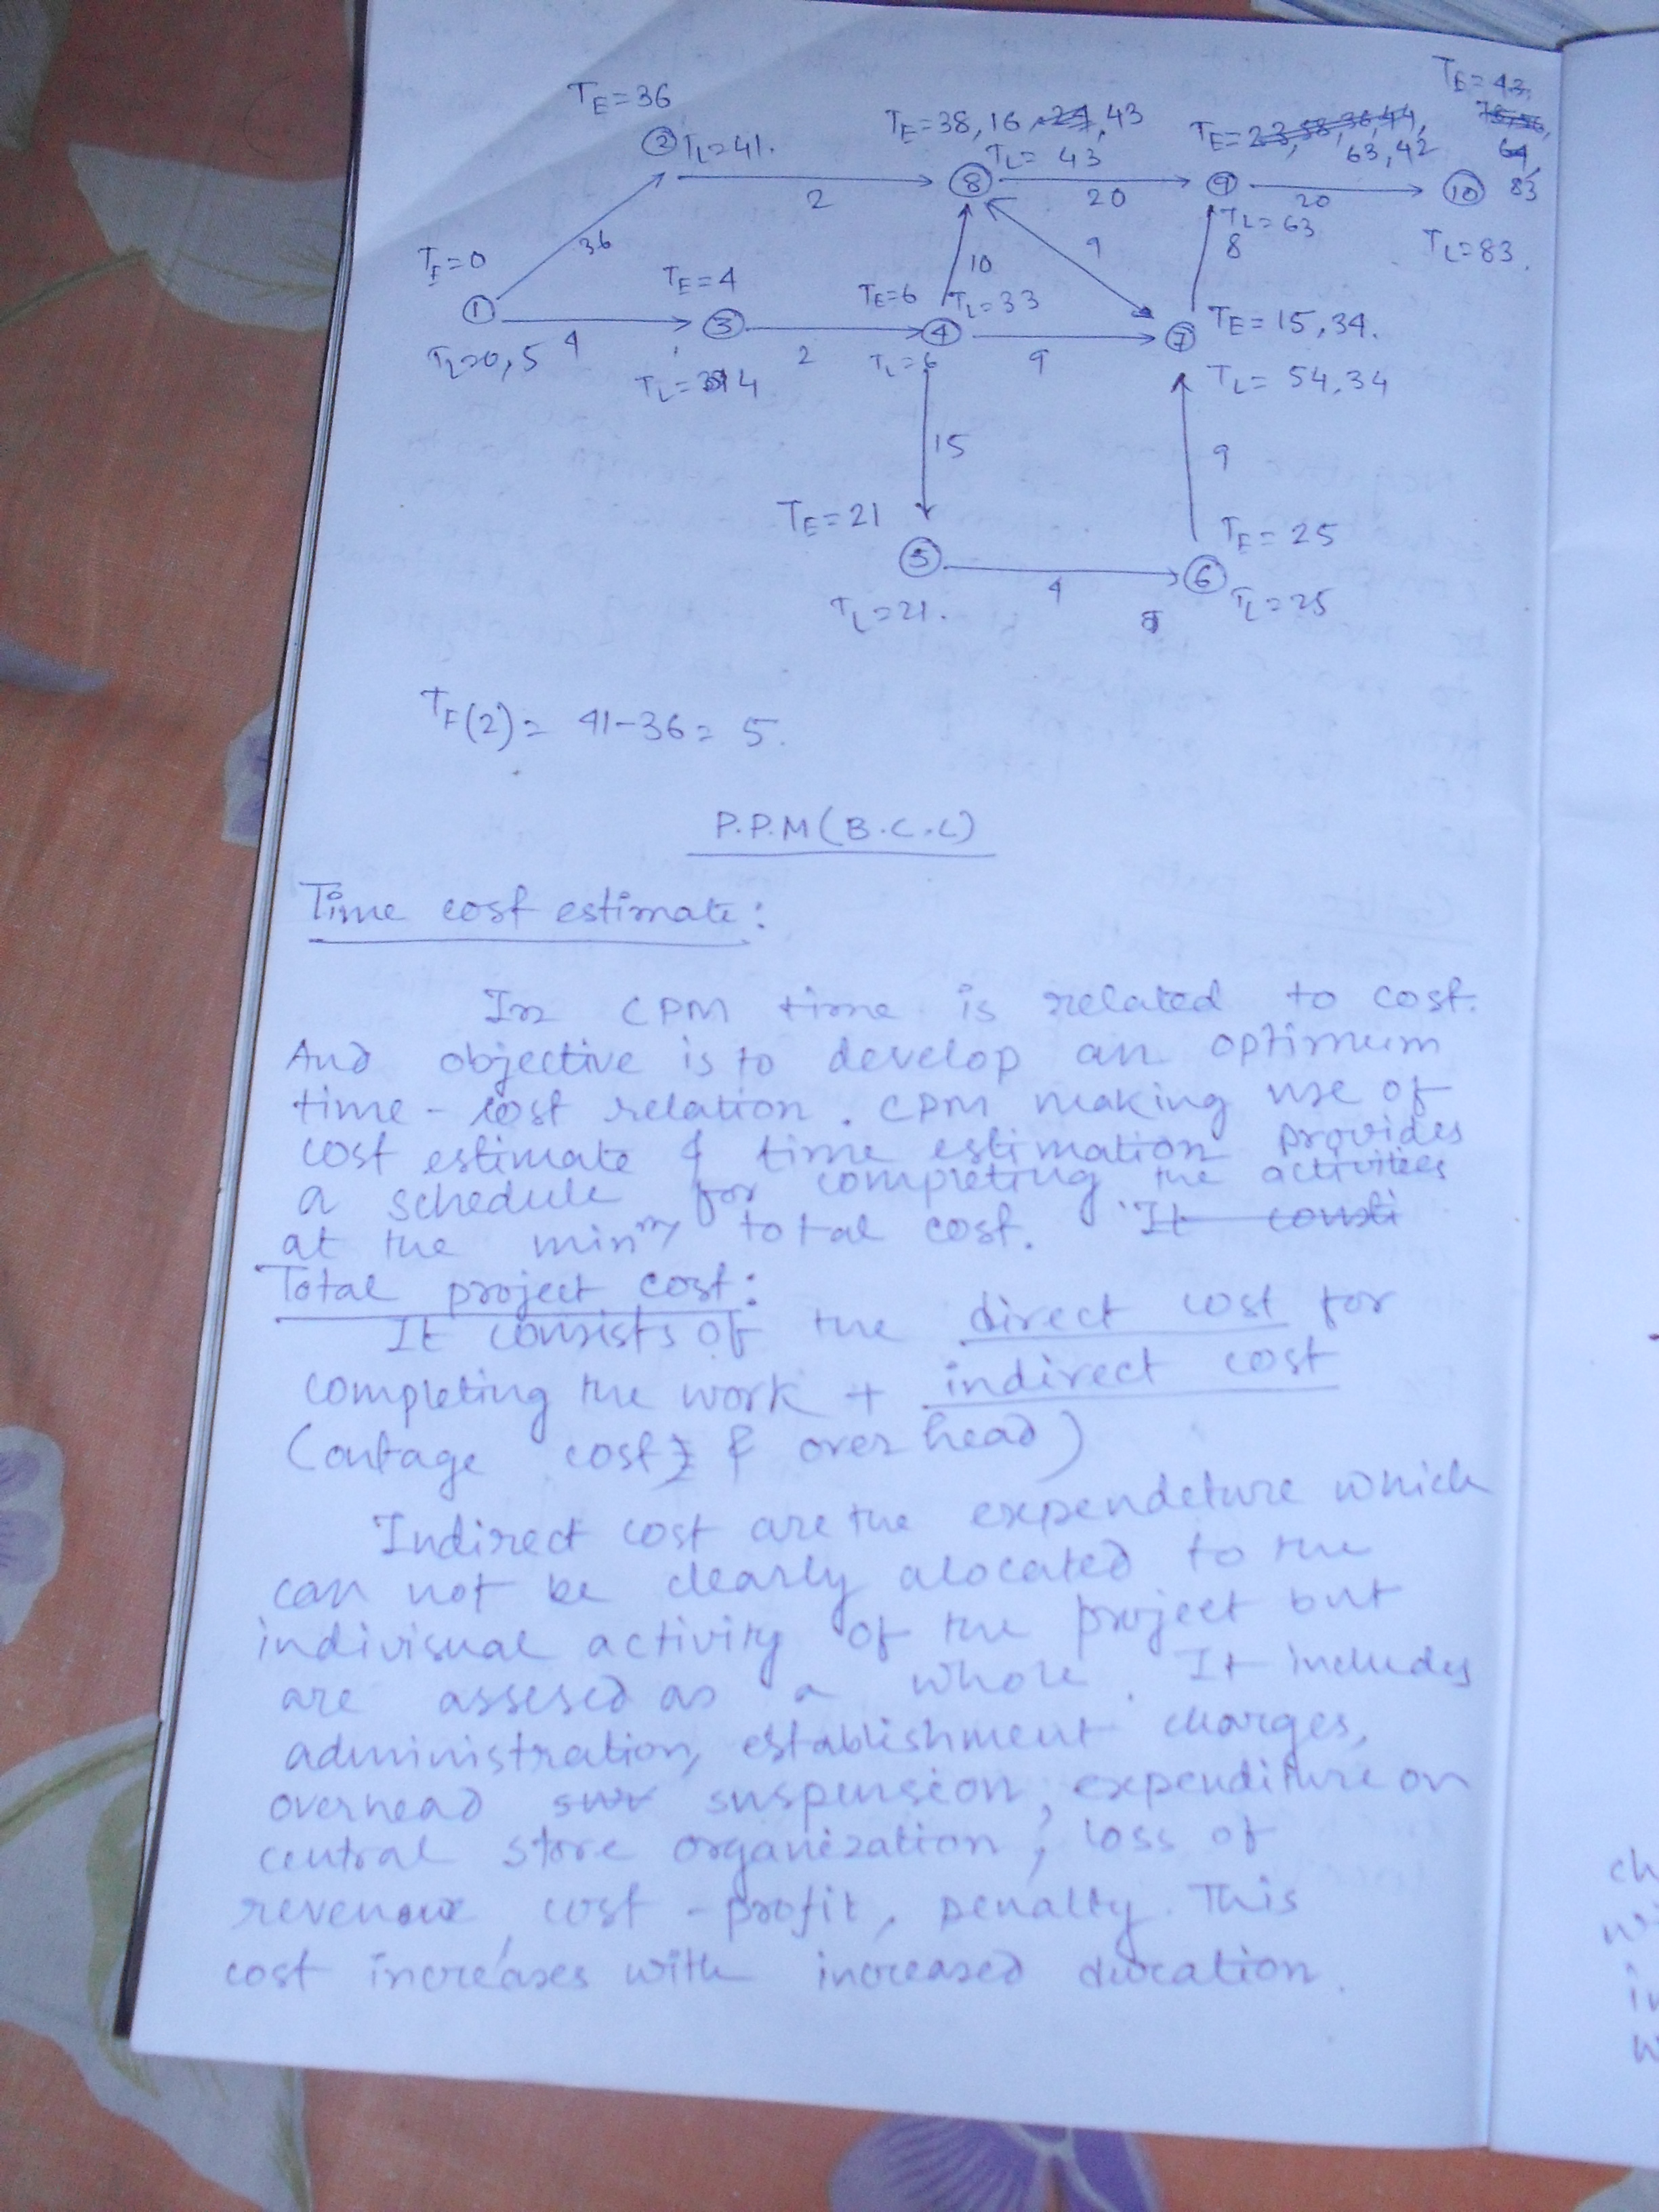 T_E=36
② T_L=41.
T_E=38,16, 27,43
T_L= 43
T_E=23,58,36,44,
63,42
T_E=43,
64,
83
2
⑧
20
⑨
20
⑩
T_L=63
T_L=83.
36
10
9
8
T_E=0
①
T_L=0,5
4
T_E=4
③
T_L= 4
2
T_E=6
T_L=33
④
T_L=6
9
⑦
T_E=15,34.
T_L= 54,34
15
9
T_E=21
⑤
T_L=21.
4
T_E=25
⑥
T_L=25
T_F(2)= 41-36= 5.
P.P.M(B.C.L)
Time cost estimate:
In CPM time is related to cost.
And objective is to develop an optimum
time-cost relation. CPM making use of
cost estimate & time estimation provides
a schedule for completing the activities
at the minm total cost. It consti
Total project cost:
It consists of the direct cost for
completing the work + indirect cost
(outage cost & over head)
Indirect cost are the expendeture which
can not be clearly alocated to the
indivisual activity of the project but
are assesed as a whole. It includes
administration, establishment charges,
overhead suspension, expenditure on
central store organization, loss of
revenue, cost-profit, penalty. This
cost increases with increased duration.
ch
in